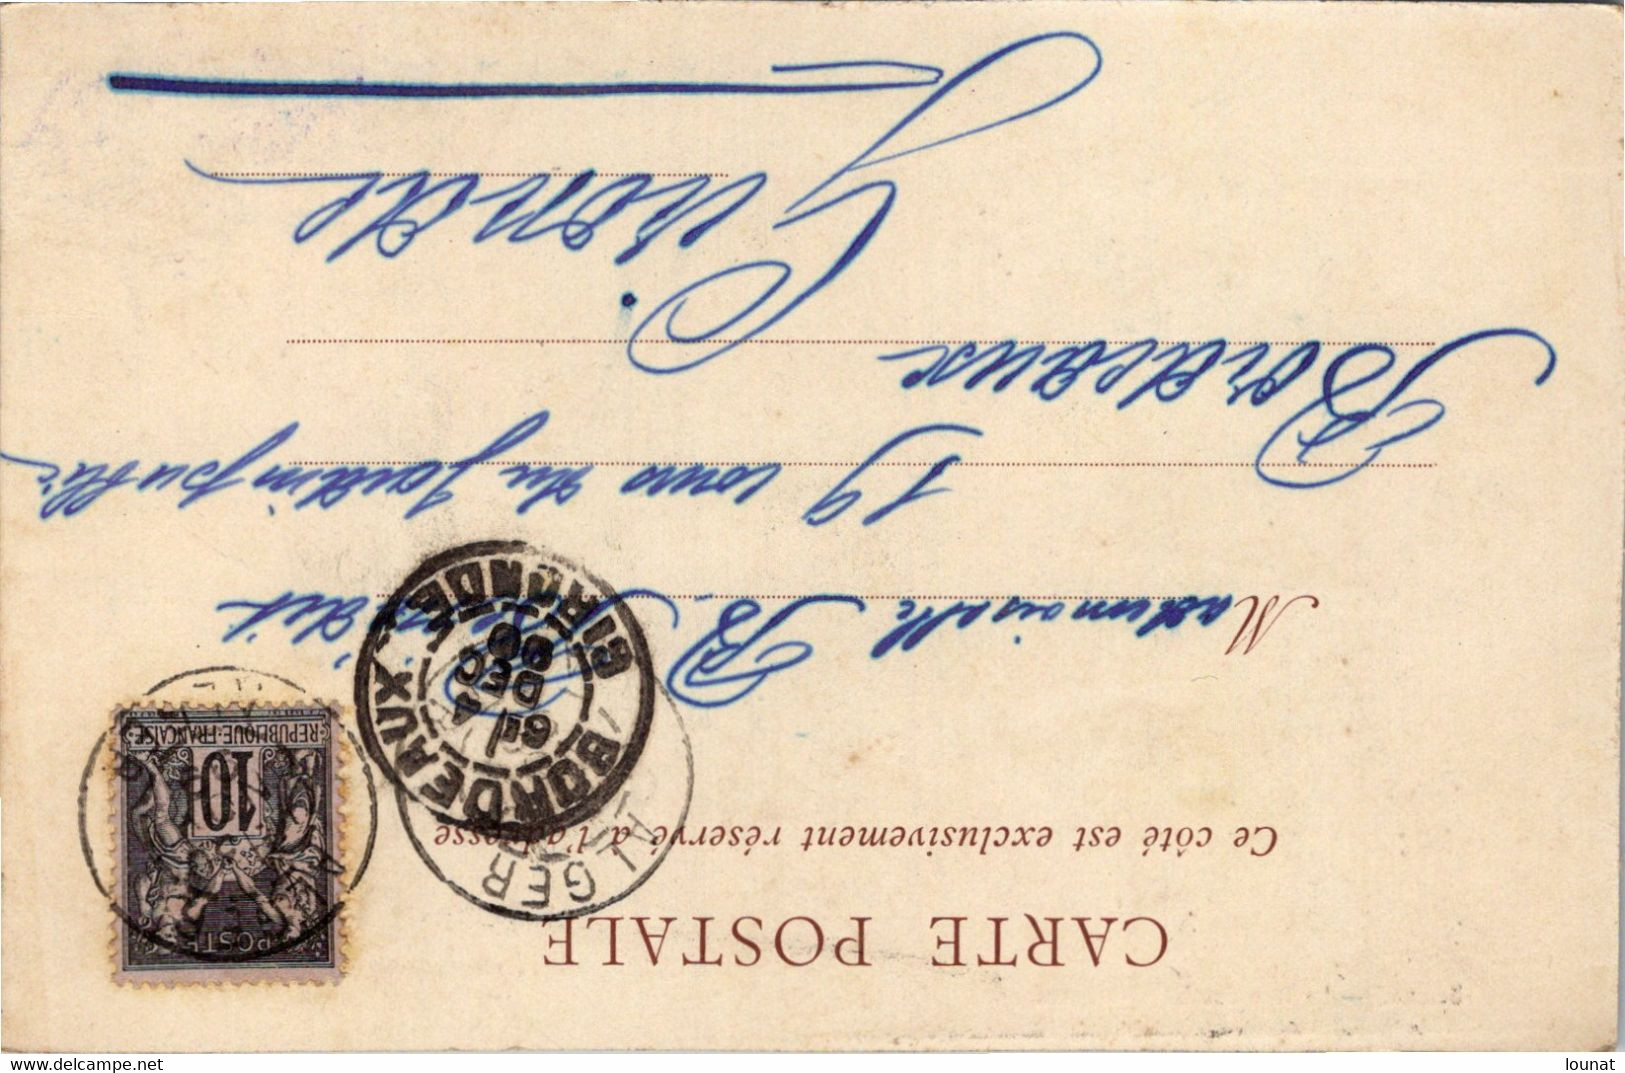 CARTE POSTALE
Ce côté est exclusivement réservé à l'adresse
Mademoiselle B.
19 cours du Jardin public
Bordeaux
Gironde
REPUBLIQUE·FRANÇAISE
10
POSTES
ALGER
BORDEAUX
GIRONDE
6E
4
DEC
00
delcampe.net
lounat